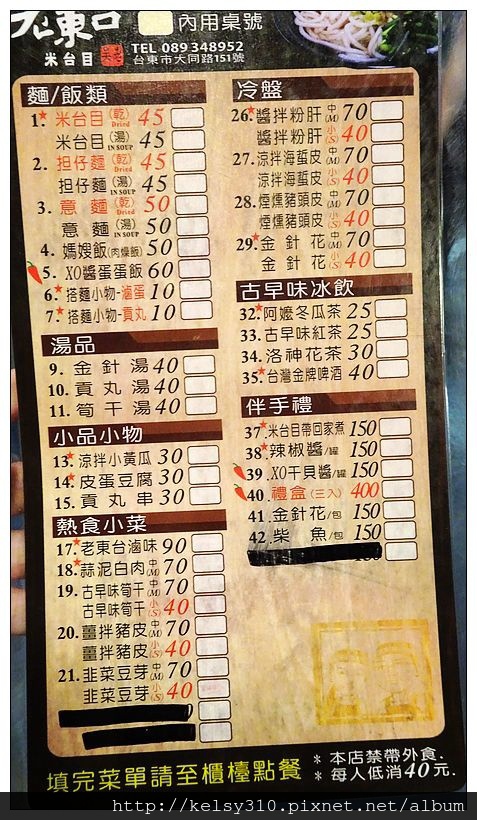 老東台
米台目
內用桌號
TEL 089 348952
台東市大同路151號
麵/飯類
1.*米台目(乾)Dried 45
米台目(湯)IN SOUP 45
2. 担仔麵(乾)Dried 45
担仔麵(湯)IN SOUP 45
3. 意麵(乾)Dried 50
意麵(湯)IN SOUP 50
4. 媽嫂飯(肉燥飯)50
5. XO醬蛋蛋飯 60
6.*搭麵小物-滷蛋 10
7.*搭麵小物-貢丸 10
湯品
9. 金針湯 40
10. 貢丸湯 40
11. 筍干湯 40
小品小物
13.*涼拌小黃瓜 30
14.*皮蛋豆腐 30
15. 貢丸串 30
熱食小菜
17.*老東台滷味 90
18.*蒜泥白肉 中(M) 70
19. 古早味筍干 中(M) 70
古早味筍干 小(S) 40
20. 薑拌豬皮 中(M) 70
薑拌豬皮 小(S) 40
21. 韭菜豆芽 中(M) 70
韭菜豆芽 小(S) 40
冷盤
26.*醬拌粉肝 中(M) 70
醬拌粉肝 小(S) 40
27. 涼拌海蜇皮 中(M) 70
涼拌海蜇皮 小(S) 40
28. 煙燻豬頭皮 中(M) 70
煙燻豬頭皮 小(S) 40
29.*金針花 中(M) 70
金針花 小(S) 40
古早味冰飲
32.*阿嬤冬瓜茶 25
33. 古早味紅茶 25
34. 洛神花茶 30
35.*台灣金牌啤酒 40
伴手禮
37.*米台目帶回家煮 150
38.*辣椒醬/罐 150
39. XO干貝醬/罐 150
40. 禮盒(三入) 400
41. 金針花/包 150
42. 柴魚/包 150
填完菜單請至櫃檯點餐
* 本店禁帶外食.
* 每人低消40元.
http://kelsy310.pixnet.net/album